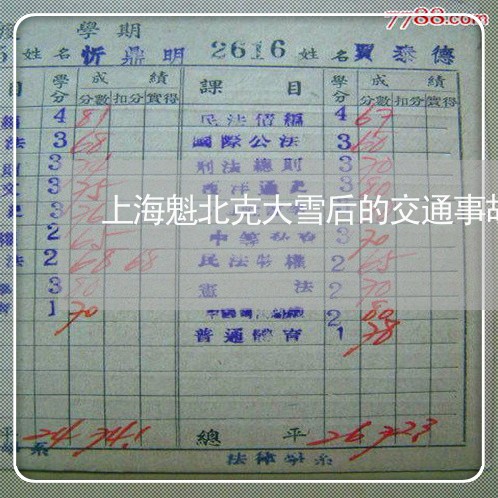 7788.com
學期
姓名 忻鼎明 2616 姓名 賈泰德
目 學分 成績 課目 學分 成績
分數 扣分 實得 分數 扣分 實得
4 81 民法債編 4 67
法 3 68 國際公法 3 60
3 刑法總則 3 70
3 75 西洋通史 3 80
上海魁北克大雪后的交通事故
2 65 3 70
法 2 68 68 民法物權 2 65
3 80 憲法 2 70
1 70 2 80
普通體育 1 78
平 24 74.1 總平 26 72.3
系 法律學系